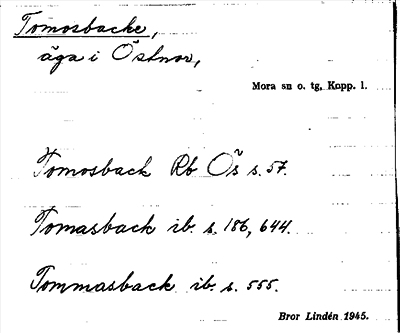 Tomosbacke,
äga i Östnor,
Mora sn o. tg, Kopp. l.
Tomosback Rb Ös s. 57.
Tomasback ib. s. 186, 644.
Tommasback ib. s. 555.
Bror Lindén 1945.